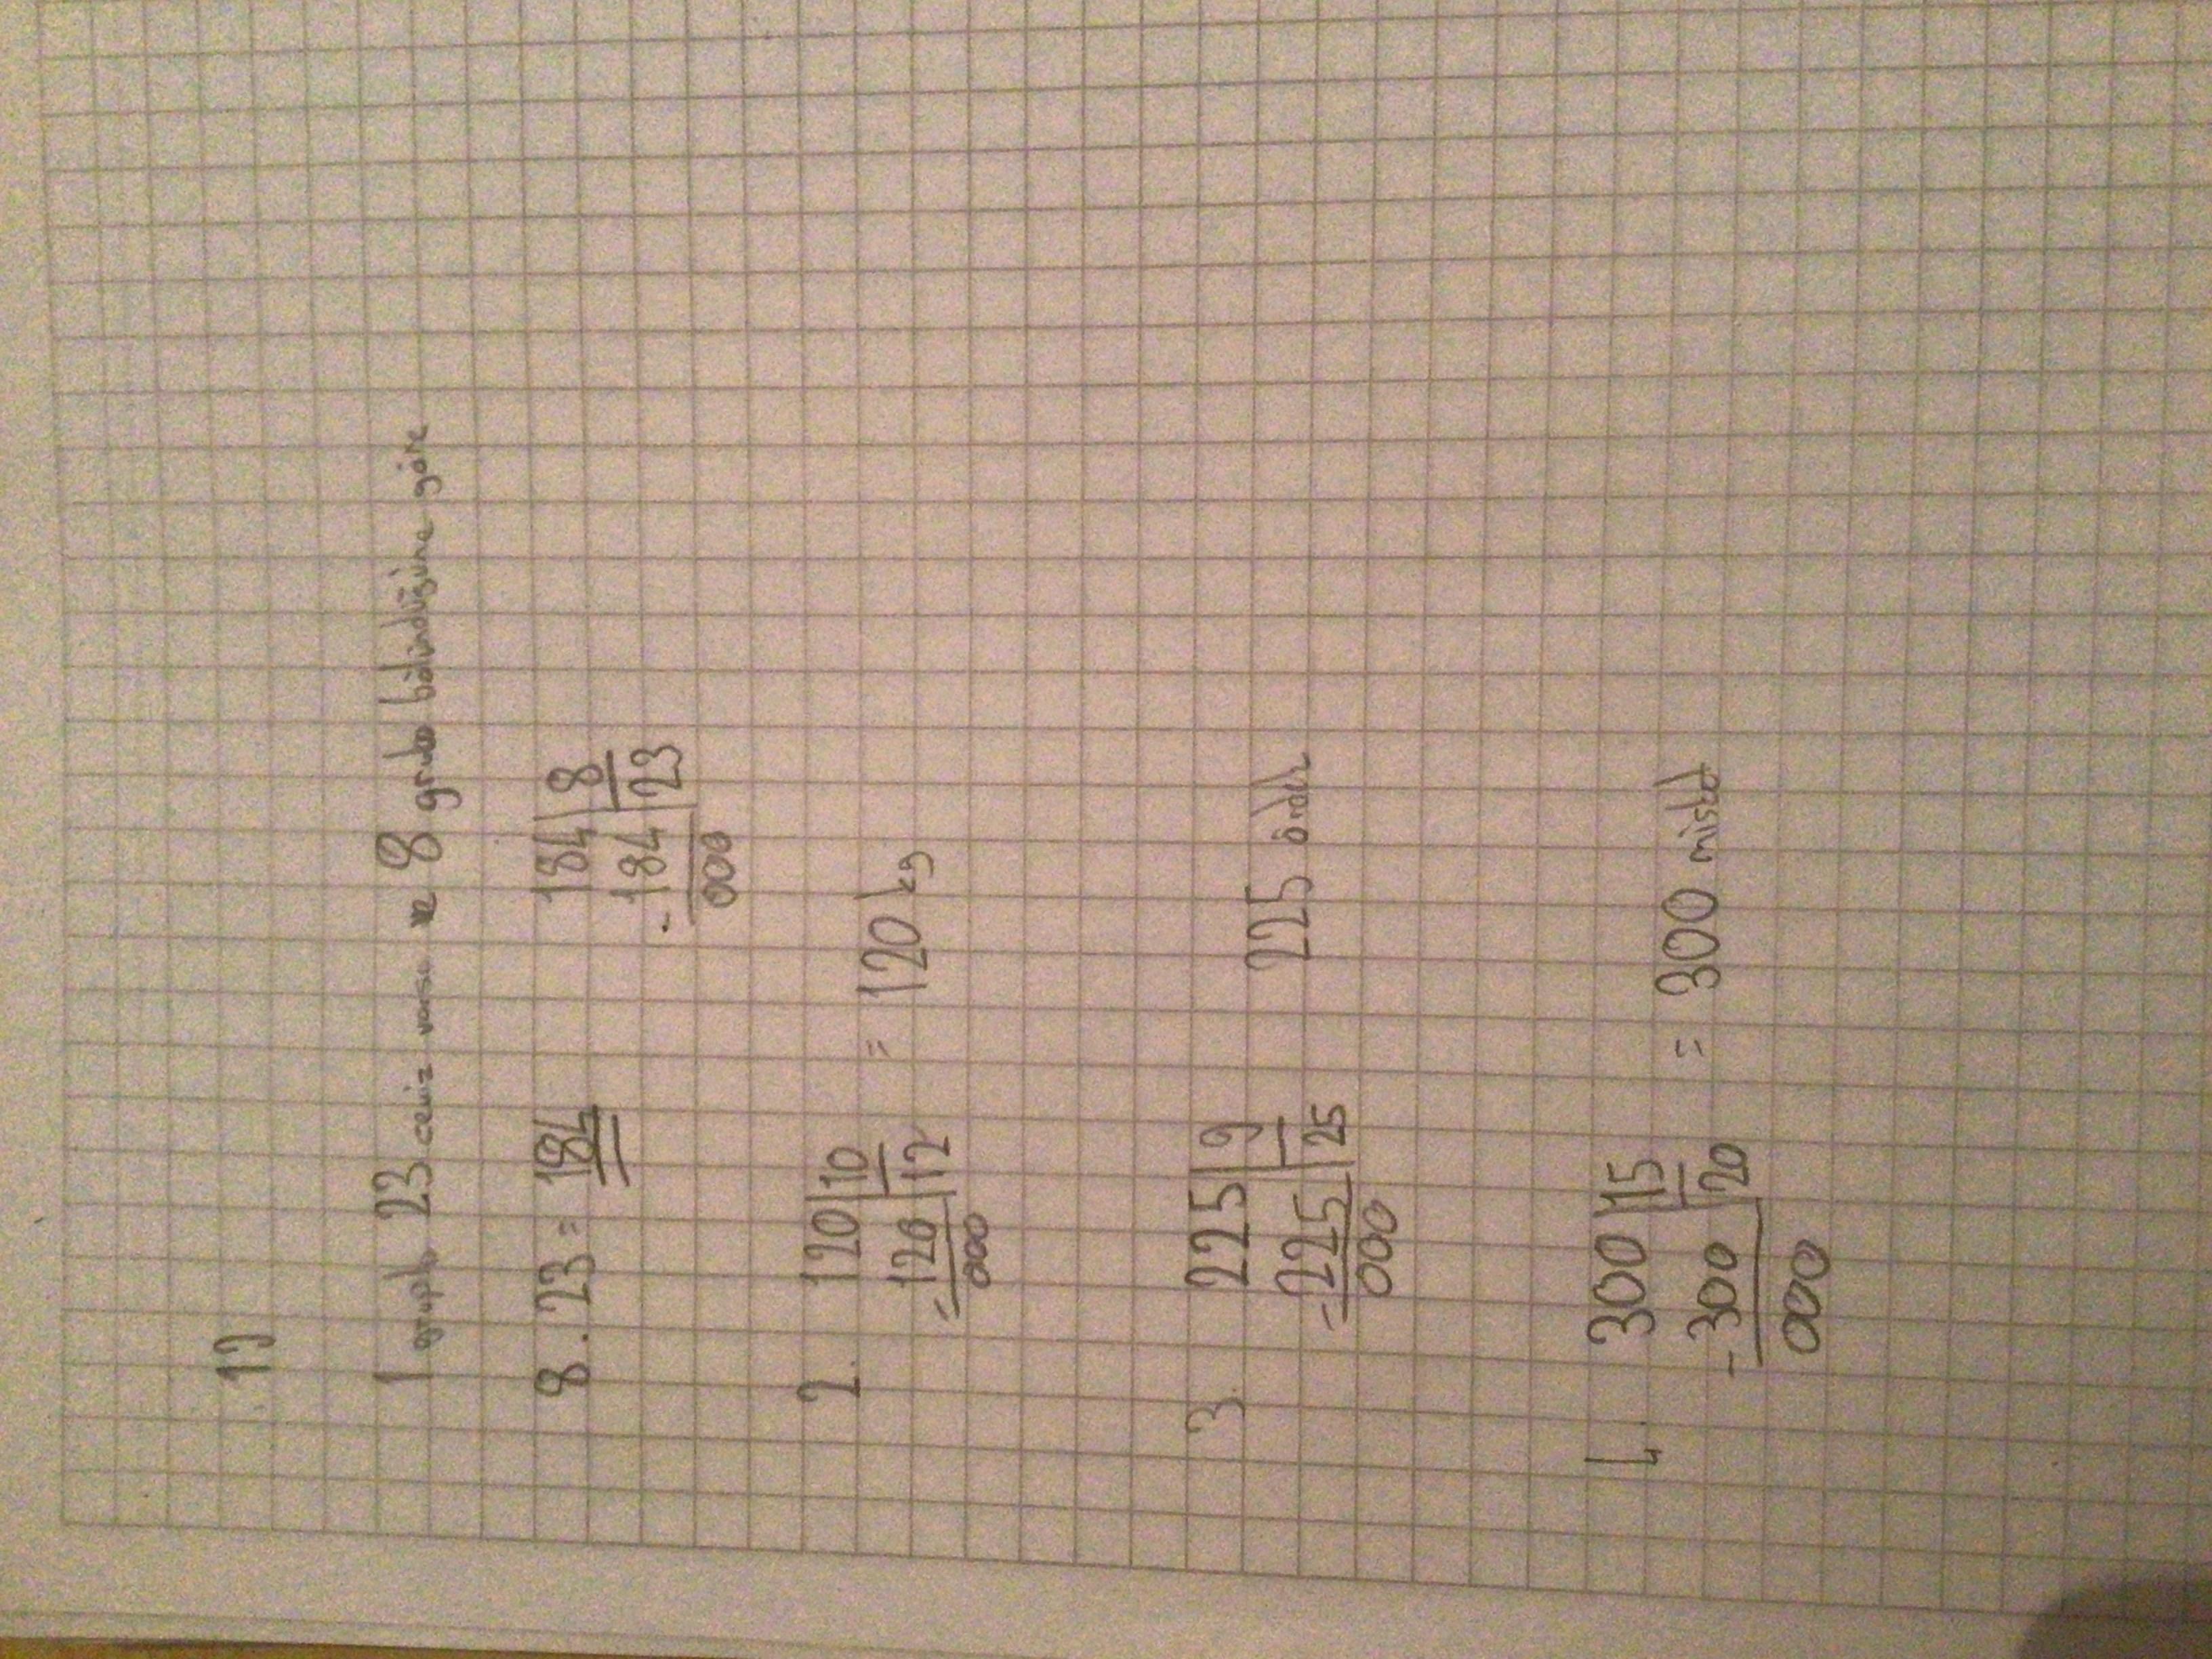 1)
1 grupta 23 ceviz varsa ve 8 gruba bölündüğüne göre
8 . 23 = 184 184 | 8
- 184 | 23
000
2. 120 | 10
- 120 | 12 = 120 kg
000
3. 225 | 9
- 225 | 25 225
000
4 300 | 15
- 300 | 20 = 300
000